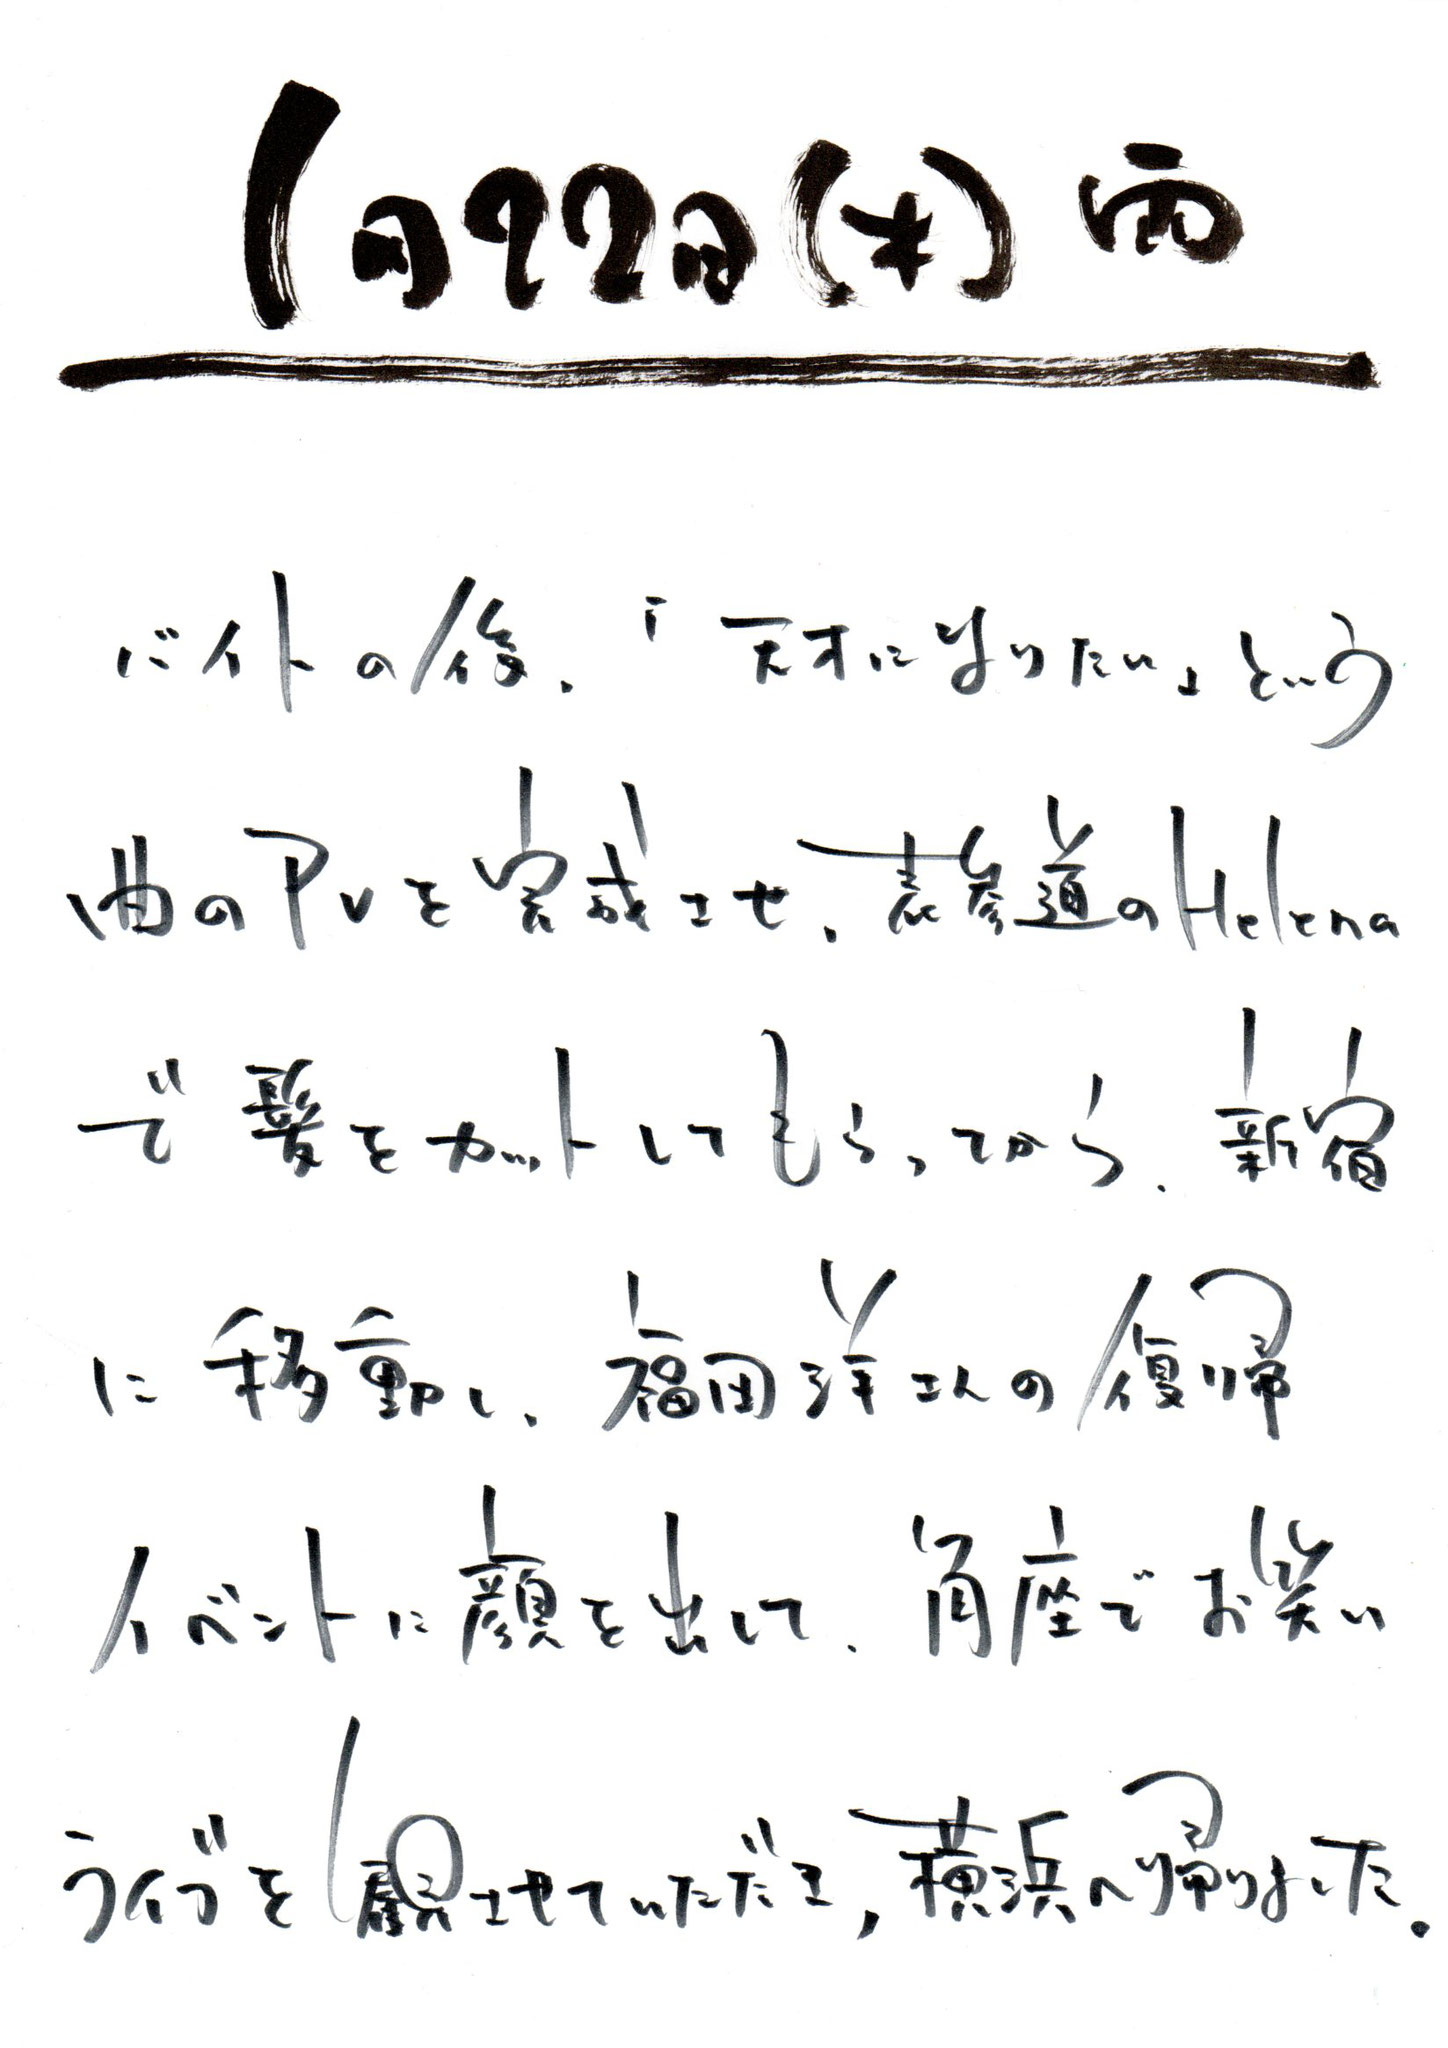 1月22日(木)雨
バイトの後、「天才になりたい」という
曲のPVを完成させ、表参道のHelena
で髪をカットしてもらってから、新宿
に移動し、福田洋さんの復帰
イベントに顔を出して、角座でお笑い
ライブを観させていただき,横浜へ帰りました。